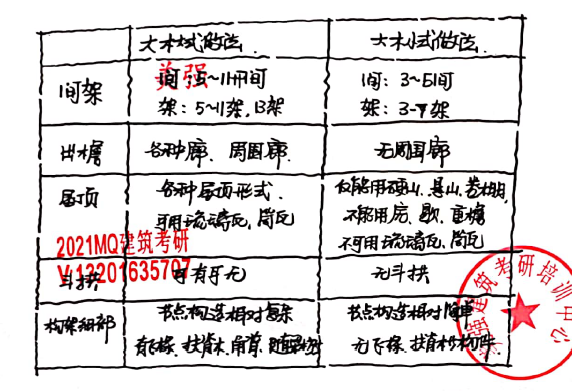 大木大式做法
大木小式做法
间架
间:5~11开间
架:5~11架,13架
间:3~5间
架:3-7架
出檐
各种廊、周围廊.
无周围廊
屋顶
各种屋顶形式.
可用琉璃瓦、筒瓦
仅能用硬山、悬山、卷棚,
不能用庑、歇、重檐
不可用琉璃瓦、筒瓦
斗拱
可有可无
无斗拱
构架细部
节点构造相对复杂
有飞椽、扶脊木、角背、
节点构造相对简单
无飞椽、扶脊木构件
美强
2021MQ建筑考研
V:13201635707
美强建筑考研培训中心